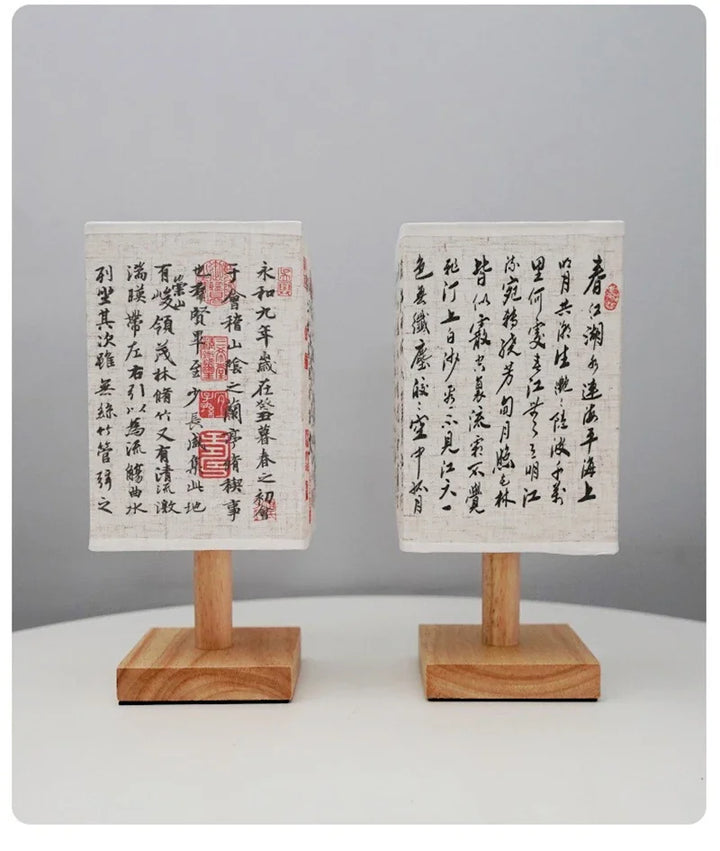 永和九年歲在癸丑暮春之初會
于會稽山陰之蘭亭脩稧事
也羣賢畢至少長咸集此地
有崇山峻領茂林脩竹又有清流激
湍暎帶左右引以為流觴曲水
列坐其次雖無絲竹管弦之
春江潮水連海平海上
明月共潮生灩灩隨波千萬
里何處春江無月明江
流宛轉繞芳甸月照花林
皆似霰空裏流霜不覺
飛汀上白沙看不見江天一
色無纖塵皎〻空中孤月